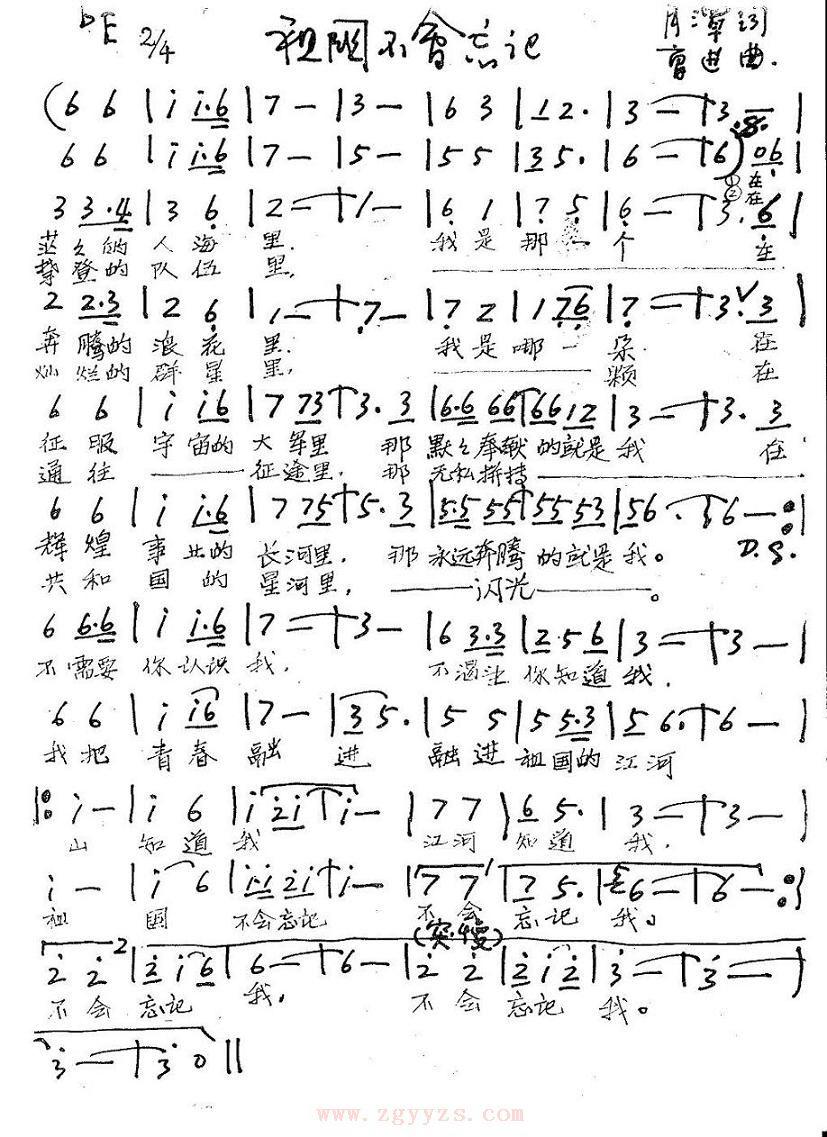 bE 2/4 祖国不会忘记 月潭词
曹进曲.
(6 6 | i i·6 | 7 — | 3 — | 6 3 | 1 2· | 3 — | 3 — |
6 6 | i i·6 | 7 — | 5 — | 5 5 | 3 5· | 6 — | 6) 0 6 |
① 在
② 在
3 3·4 | 3 6 | 2 — | 1 — | 6 1 | 7 5 | 6 — | 3· 6 |
茫々的人海里. 我是那一个 在
攀登的队伍里, 在
2 2·3 | 2 6 | 1 — | 7 — | 7 2 | 1 7 6 | 7 — | 3 ∨ 3 |
奔腾的浪花里. 我是哪一朵 在
灿烂的群星里, 颗 在
6 6 | i i 6 | 7 7 3 | 3· 3 | 6·6 6 6 | 6 6 1 2 | 3 — | 3· 3 |
征服宇宙的大军里 那默々奉献的就是我 在
通往 征途里, 那无私拼搏
6 6 | i i·6 | 7 7 5 | 5· 3 | 5·5 5 5 | 5 5 5 3 | 5 6 · | 6 — :|
辉煌事业的长河里, 那永远奔腾的就是我。 D.S.
共和国的星河里, 闪光 。
6 6·6 | i i·6 | 7 — | 3 — | 6 3·3 | 2·5 6 | 3 — | 3 — |
不需要你认识我, 不渴望你知道我,
6 6 | i i 6 | 7 — | 3 5· | 5 5 | 5 5·3 | 5 6· | 6 — |
我把青春融进 融进祖国的江河
|: i — | i 6 | i 2 i | i — | 7 7 | 6 5· | 3 — | 3 — |
山知道我 江河知道我,
i — | i 6 | i·i 2 i | i — | 7 7 | 7 5· | 5 6 — | 6 — :|
祖国不会忘记 不会忘记我。
(突慢)
2
2 2 | 2 i 6 | 6 — | 6 — | 2 2 | 2 i 2 | 3 — | 3 — |
不会忘记我, 不会忘记我。
3 — | 3 0 ||
www.zgyyzs.com